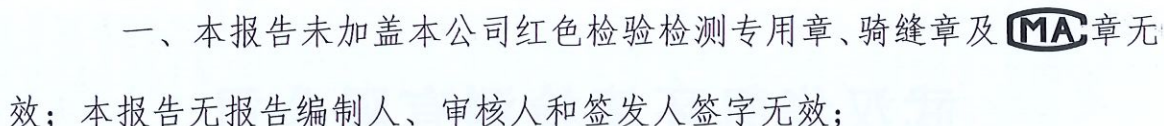 一、本报告未加盖本公司红色检验检测专用章、骑缝章及MA章无
效；本报告无报告编制人、审核人和签发人签字无效；